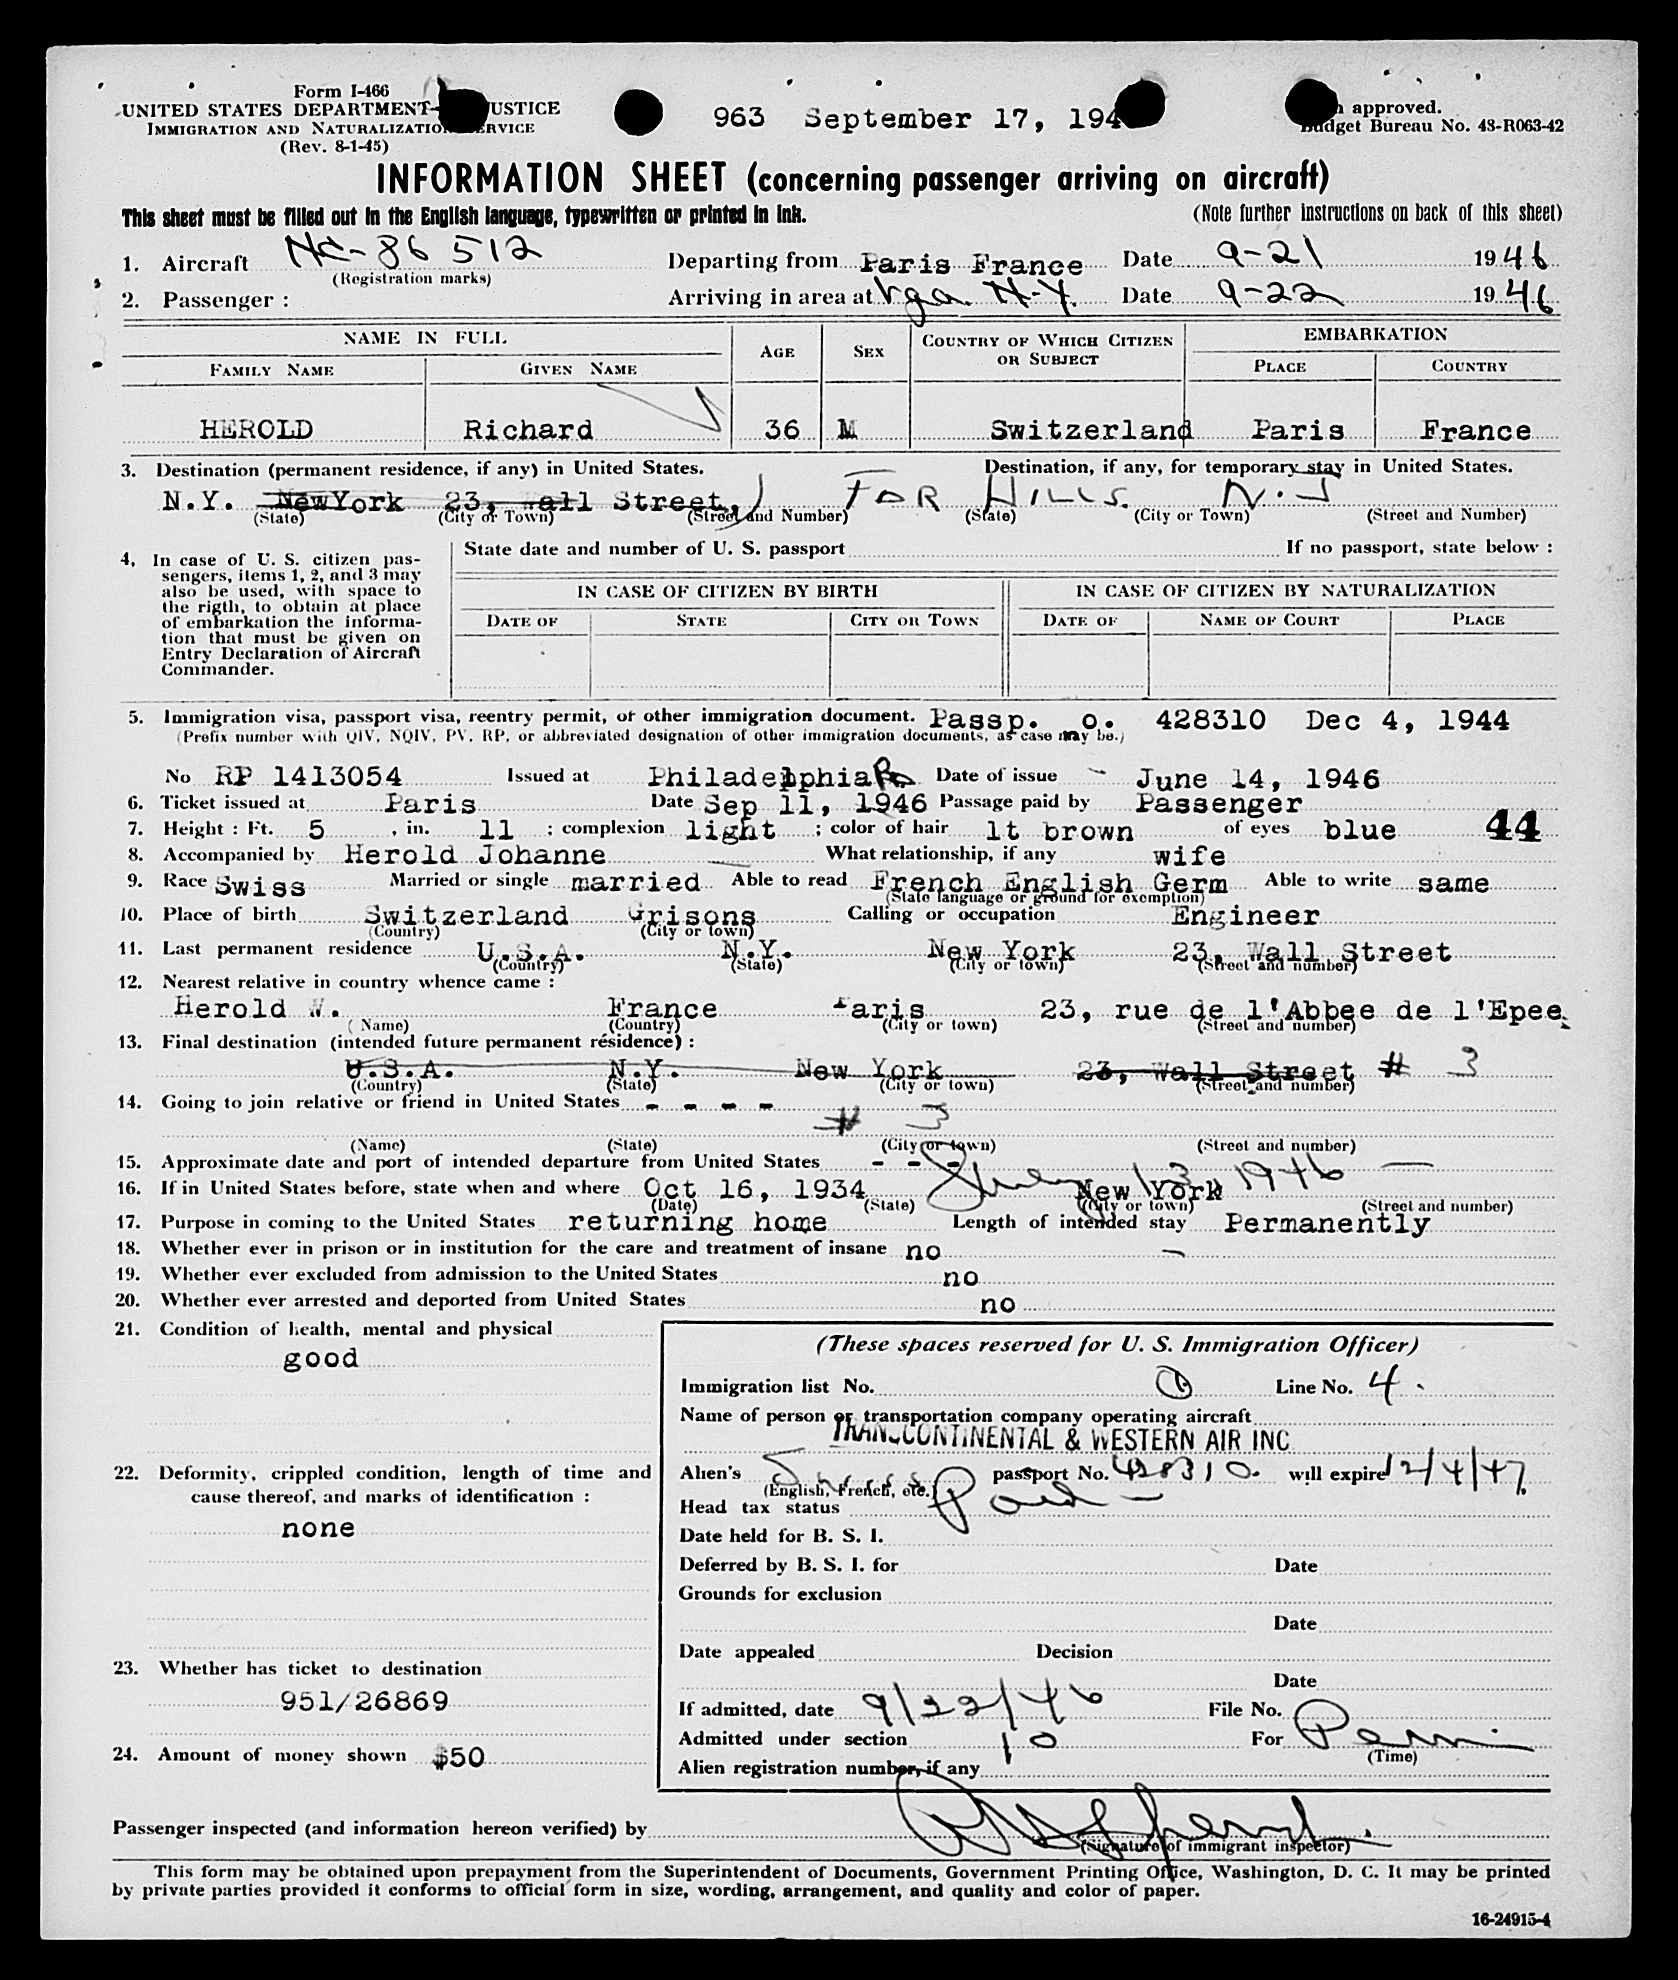 Form I-466
UNITED STATES DEPARTMENT USTICE
IMMIGRATION AND NATURALIZATIO RVICE
(Rev. 8-1-45)
963 September 17, 194
approved.
Budget Bureau No. 43-R063-42
INFORMATION SHEET (concerning passenger arriving on aircraft)
This sheet must be filled out in the English language, typewritten or printed in ink.
(Note further instructions on back of this sheet)
1. Aircraft NC-86512 Departing from Paris France Date 9-21 1946
(Registration marks)
2. Passenger : Arriving in area at Lga. N-Y. Date 9-22 1946
NAME IN FULL AGE SEX COUNTRY OF WHICH CITIZEN OR SUBJECT EMBARKATION
FAMILY NAME GIVEN NAME PLACE COUNTRY
HEROLD Richard 36 M Switzerland Paris France
3. Destination (permanent residence, if any) in United States. Destination, if any, for temporary stay in United States.
N.Y. NewYork 23, Wall Street, FAR HILLS. N.J
(State) (City or Town) (Street and Number) (State) (City or Town) (Street and Number)
4, In case of U. S. citizen pas-
sengers, items 1, 2, and 3 may
also be used, with space to
the rigth, to obtain at place
of embarkation the informa-
tion that must be given on
Entry Declaration of Aircraft
Commander.
State date and number of U. S. passport If no passport, state below :
IN CASE OF CITIZEN BY BIRTH IN CASE OF CITIZEN BY NATURALIZATION
DATE OF STATE CITY OR TOWN DATE OF NAME OF COURT PLACE
5. Immigration visa, passport visa, reentry permit, or other immigration document. Passp. o. 428310 Dec 4, 1944
(Prefix number with QIV, NQIV, PV, RP, or abbreviated designation of other immigration documents, as case may be.)
No RP 1413054 Issued at Philadelphia Pa Date of issue June 14, 1946
6. Ticket issued at Paris Date Sep 11, 1946 Passage paid by Passenger
7. Height : Ft. 5 , in. 11 ; complexion light ; color of hair lt brown of eyes blue 44
8. Accompanied by Herold Johanne What relationship, if any wife
9. Race Swiss Married or single married Able to read French English Germ Able to write same
(State language or ground for exemption)
10. Place of birth Switzerland Grisons Calling or occupation Engineer
(Country) (City or town)
11. Last permanent residence U.S.A. N.Y. New York 23, Wall Street
(Country) (State) (City or town) (Street and number)
12. Nearest relative in country whence came :
Herold W. France Paris 23, rue de l'Abbee de l'Epee
(Name) (Country) (City or town) (Street and number)
13. Final destination (intended future permanent résidence) :
U.S.A. N.Y. New York 23, Wall Street # 3
(Country) (State) (City or town) (Street and number)
14. Going to join relative or friend in United States - - - -
# 3
(Name) (State) (City or town) (Street and number)
15. Approximate date and port of intended departure from United States - - -
16. If in United States before, state when and where Oct 16, 1934 July 13, 1946 - New York
(Date) (State) (City or town) (Street and number)
17. Purpose in coming to the United States returning home Length of intended stay Permanently
18. Whether ever in prison or in institution for the care and treatment of insane no
19. Whether ever excluded from admission to the United States no
20. Whether ever arrested and deported from United States no
21. Condition of health, mental and physical
good
22. Deformity, crippled condition, length of time and
cause thereof, and marks of identification :
none
23. Whether has ticket to destination
951/26869
24. Amount of money shown $50
(These spaces reserved for U. S. Immigration Officer)
Immigration list No. 1 Line No. 4.
Name of person or transportation company operating aircraft
TRANSCONTINENTAL & WESTERN AIR INC
Alien's Swiss passport No. 428310. will expire 12/4/47.
(English, French, etc.)
Head tax status Paid -
Date held for B. S. I.
Deferred by B. S. I. for Date
Grounds for exclusion
Date
Date appealed Decision
Date
If admitted, date 9/22/46 File No.
Admitted under section 10 For Perm.
(Time)
Alien registration number, if any
Passenger inspected (and information hereon verified) by
(Signature of immigrant inspector)
This form may be obtained upon prepayment from the Superintendent of Documents, Government Printing Office, Washington, D. C. It may be printed
by private parties provided it conforms to official form in size, wording, arrangement, and quality and color of paper.
16-24915-4